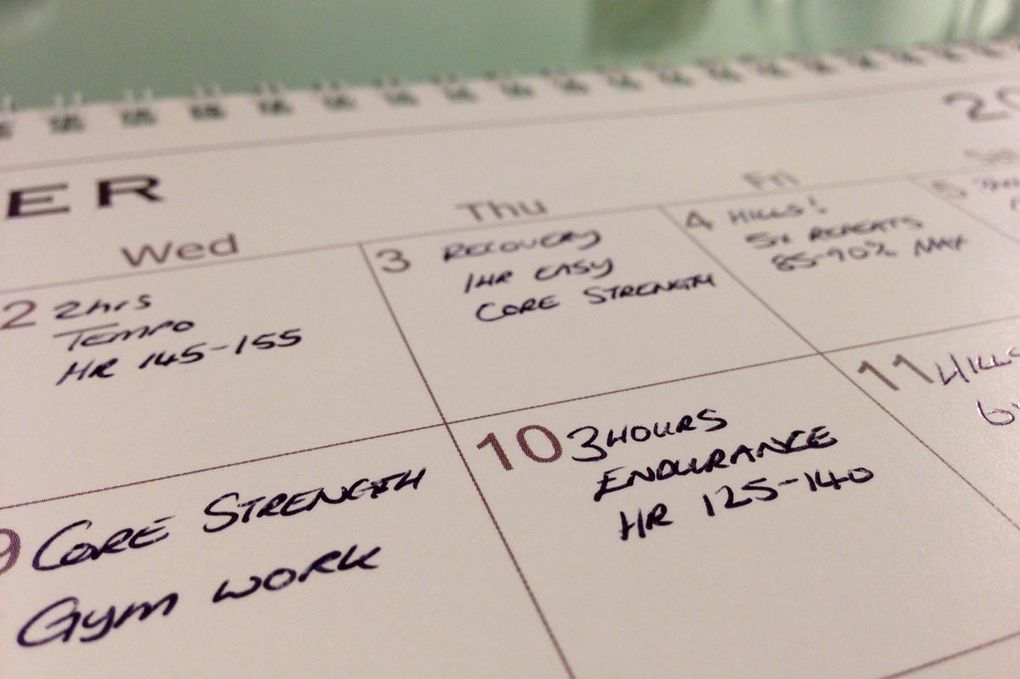 20
ER
Wed
Thu
Fri
2 2hrs
TEMPO
HR 145-155
3 RECOVERY
1HR EASY
CORE STRENGTH
4 HILLS!
5x REPEATS
85-90% MAX
5
9 CORE STRENGTH
GYM WORK
10 3 HOURS
ENDURANCE
HR 125-140
11 HILLS